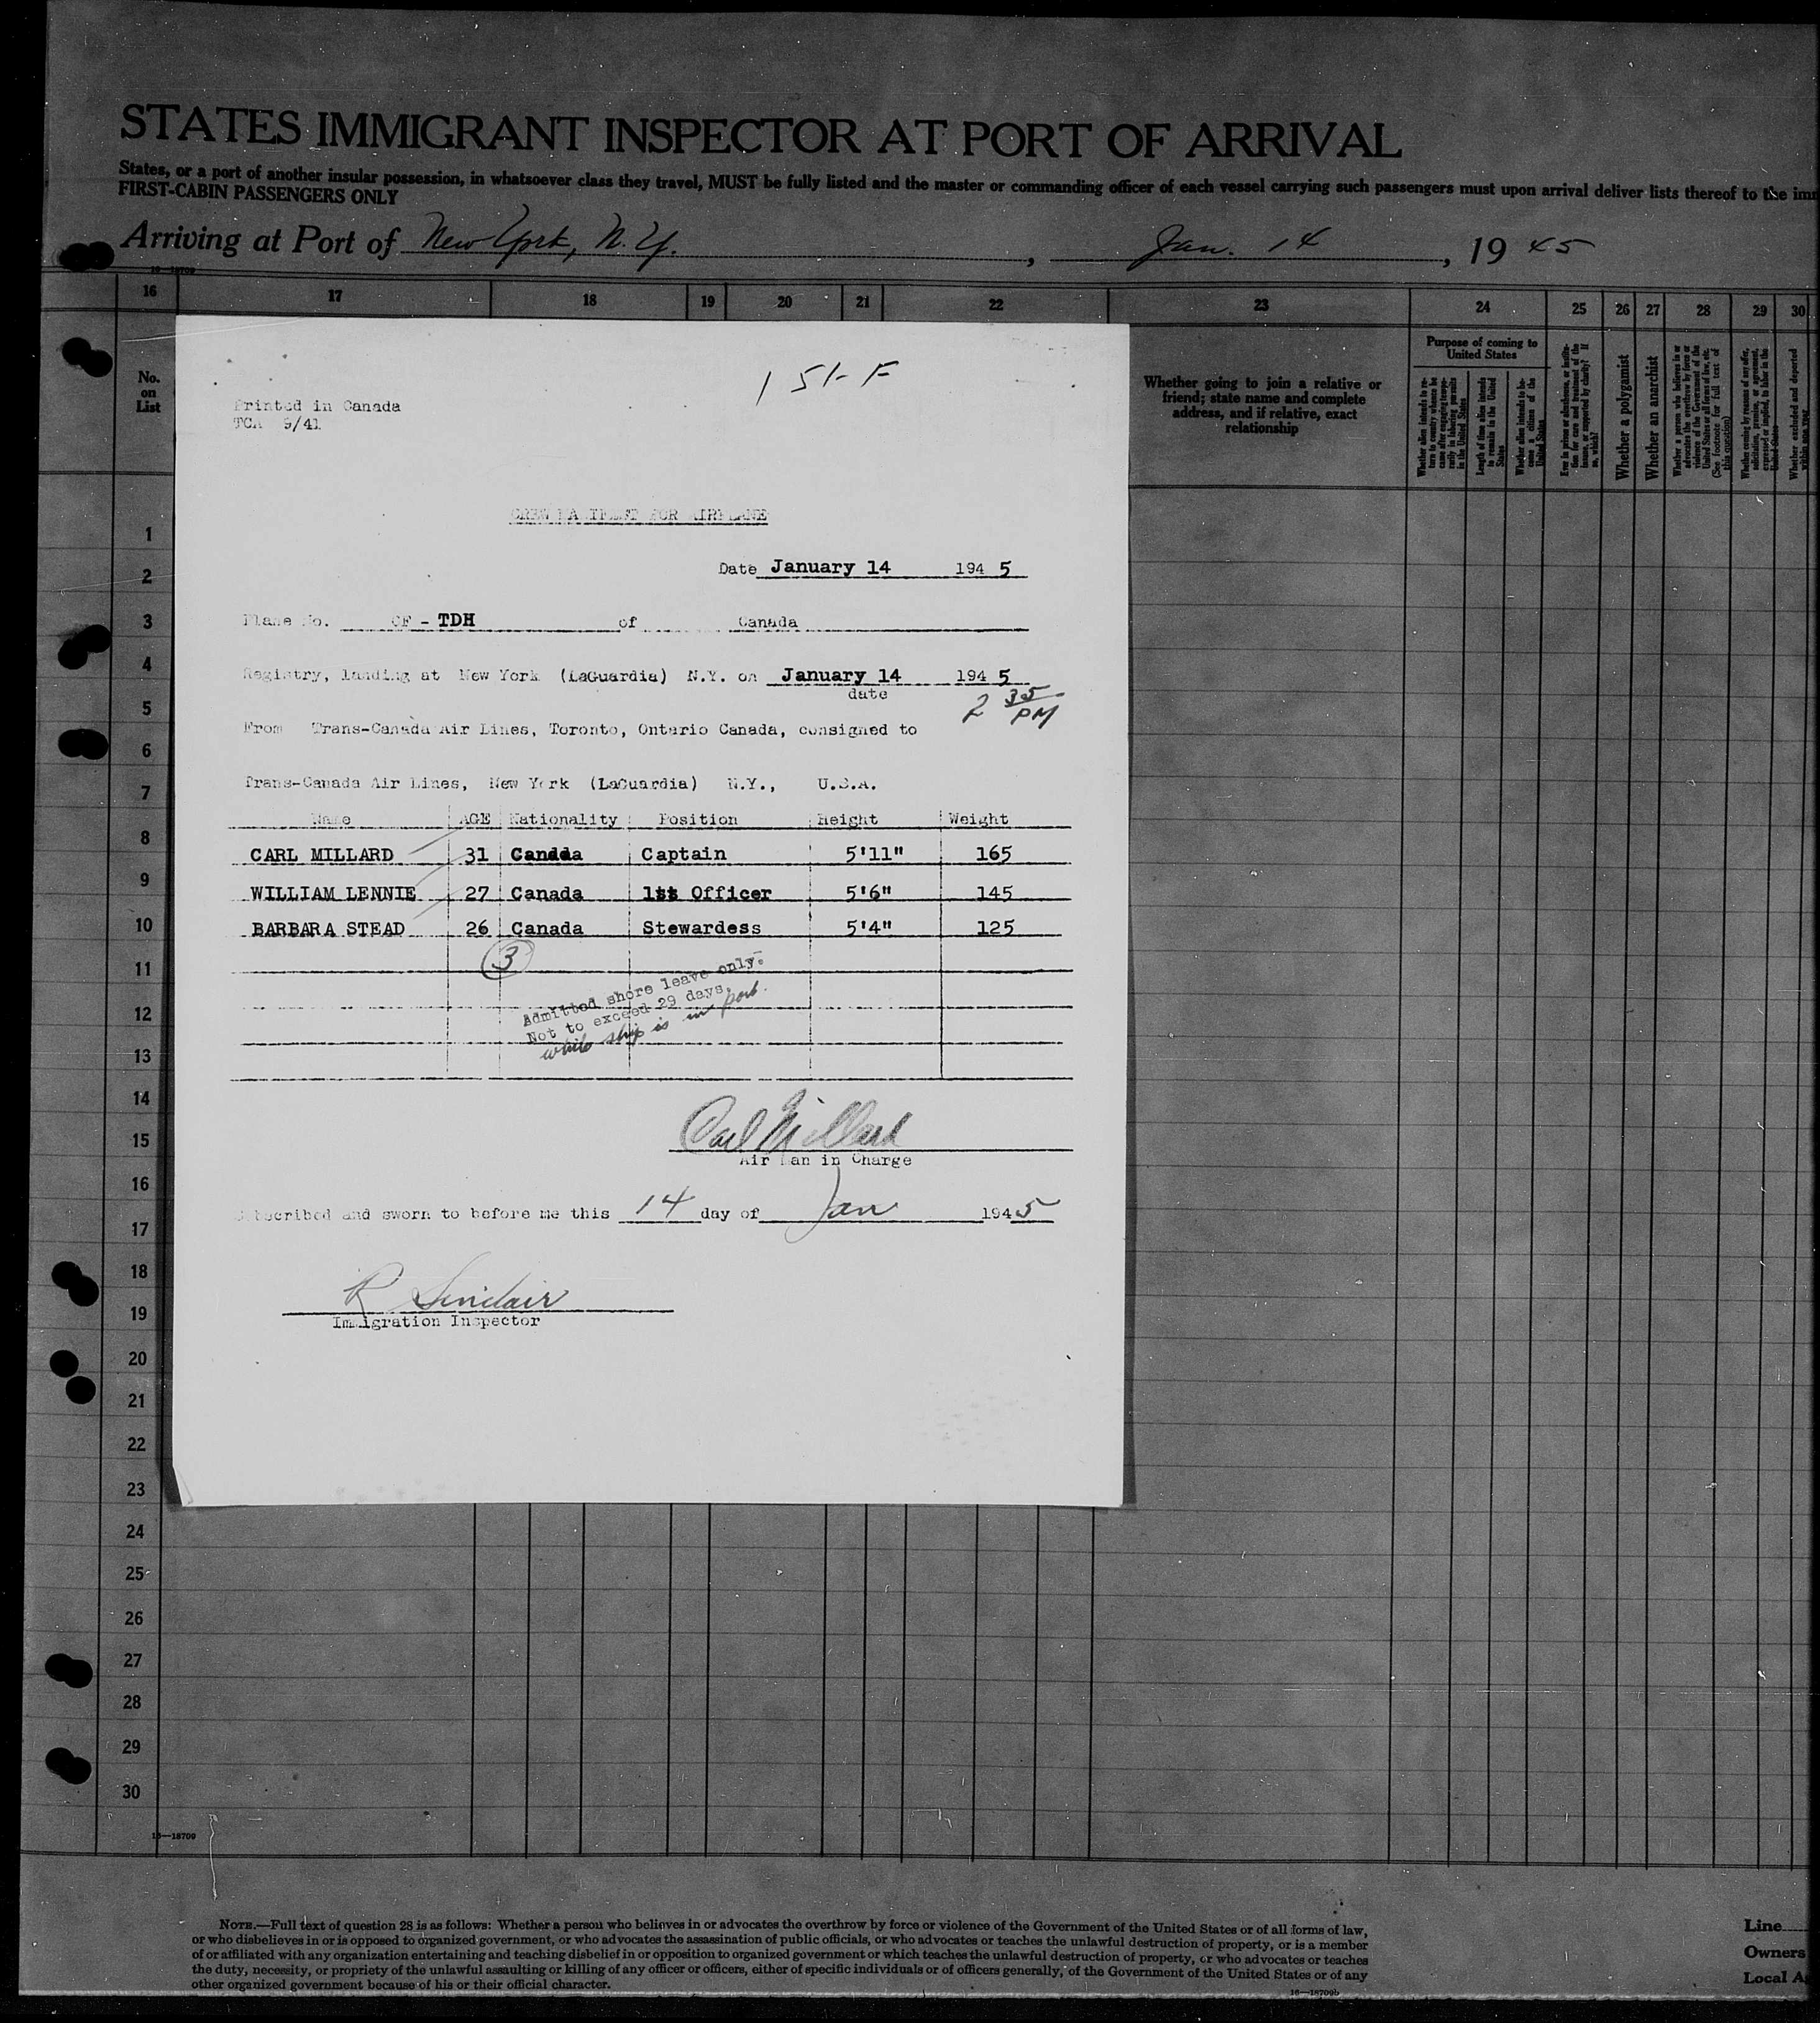 STATES IMMIGRANT INSPECTOR AT PORT OF ARRIVAL
States, or a port of another insular possession, in whatsoever class they travel, MUST be fully listed and the master or commanding officer of each vessel carrying such passengers must upon arrival deliver lists thereof to the imm
FIRST-CABIN PASSENGERS ONLY
Arriving at Port of New York, N.Y. , Jan. 14 , 19 45
16—18709
16 17 18 19 20 21 22 23 24 25 26 27 28 29 30
No.
on
List
Whether going to join a relative or
friend; state name and complete
address, and if relative, exact
relationship
Purpose of coming to
United States
Whether alien intends to re-
turn to country whence he
came after engaging tempo-
rarily in laboring pursuits
in the United States
Length of time alien intends
to remain in the United
States
Whether alien intends to be-
come a citizen of the
United States
Ever in prison or almshouse, or institu-
tion for care and treatment of the
insane, or supported by charity? If
so, which?
Whether a polygamist
Whether an anarchist
Whether a person who believes in or
advocates the overthrow by force or
violence of the Government of the
United States or all forms of law, etc.
(See footnote for full text of
this question)
Whether coming by reason of any offer,
solicitation, promise, or agreement,
expressed or implied, to labor in the
United States
Whether excluded and deported
within one year
Printed in Canada
TCA 9/41
CREW MANIFEST FOR AIRPLANE
Date January 14 194 5
Plane No. CF - TDH of Canada
Registry, landing at New York (LaGuardia) N.Y. on January 14 194 5
date
2 35 PM
From Trans-Canada Air Lines, Toronto, Ontario Canada, consigned to
Trans-Canada Air Lines, New York (LaGuardia) N.Y., U.S.A.
Name AGE Nationality Position Height Weight
CARL MILLARD 31 Canada Captain 5'11" 165
WILLIAM LENNIE 27 Canada 1st Officer 5'6" 145
BARBARA STEAD 26 Canada Stewardess 5'4" 125
3
Admitted shore leave only.
Not to exceed 29 days.
while ship is in port.
Carl Millard
Air Man in Charge
Subscribed and sworn to before me this 14 day of Jan 1945
R Sinclair
Immigration Inspector
1
2
3
4
5
6
7
8
9
10
11
12
13
14
15
16
17
18
19
20
21
22
23
24
25
26
27
28
29
30
16—18709
NOTE.—Full text of question 28 is as follows: Whether a person who believes in or advocates the overthrow by force or violence of the Government of the United States or of all forms of law,
or who disbelieves in or is opposed to organized government, or who advocates the assassination of public officials, or who advocates or teaches the unlawful destruction of property, or is a member
of or affiliated with any organization entertaining and teaching disbelief in or opposition to organized government or which teaches the unlawful destruction of property, or who advocates or teaches
the duty, necessity, or propriety of the unlawful assaulting or killing of any officer or officers, either of specific individuals or of officers generally, of the Government of the United States or of any
other organized government because of his or their official character.
16—18709b
Line
Owners
Local A